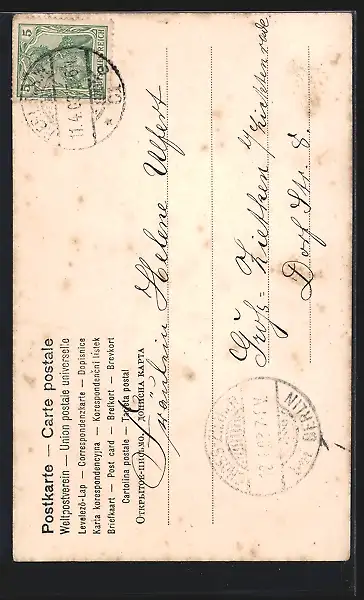 Postkarte — Carte postale
Weltpostverein — Union postale universelle
Levelező-Lap — Correspondenzkarte — Dopisnice
Karta korespondencyjna — Korespondenční lístek
Briefkaart — Post card — Brefkort — Brevkort
Cartolina postale — Tarjeta postal
ОТКРЫТОЕ ПИСЬМО. ДОПИСНА КАРТА
5
REICH
11.4.02
Fräulein Helene Ulfert
Groß-Ziethen b/ Lichtenrade
Dorf Str. 8.
12.4.02. 7-8 V.
BERLIN